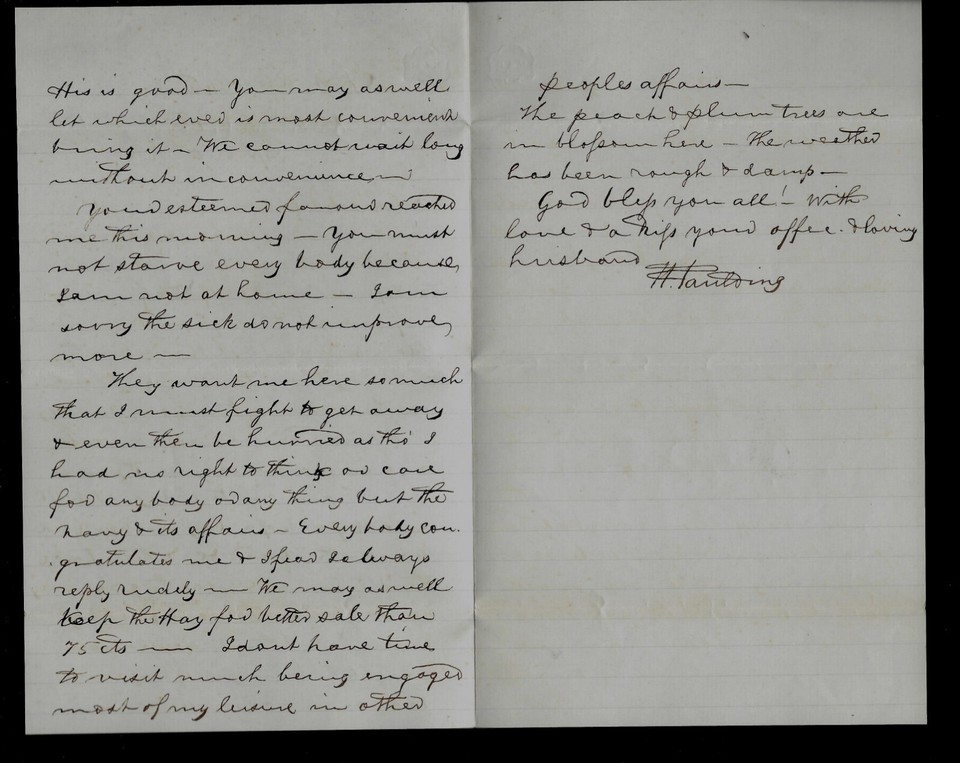 His is good — You may as well
let which ever is most convenient
bring it — We cannot wait long
without inconvenience —
Your esteemed favour reached
me this morning — You must
not starve every body because
I am not at home — I am
sorry the sick do not improve
more —
They want me here so much
that I must fight to get away
& even then be hurried as tho' I
had no right to think or care
for any body or any thing but the
Navy & its affairs — Every body con-
gratulates me & I fear I always
reply rudely — We may as well
keep the Hay for better sale than
75 cts — I dont have time
to visit much being engaged
most of my leisure in other
peoples affairs —
The peach & plum trees are
in blossom here — The weather
has been rough & damp —
God bless you all! — With
love & a kiss your affec. & loving
husband
H. Paulding